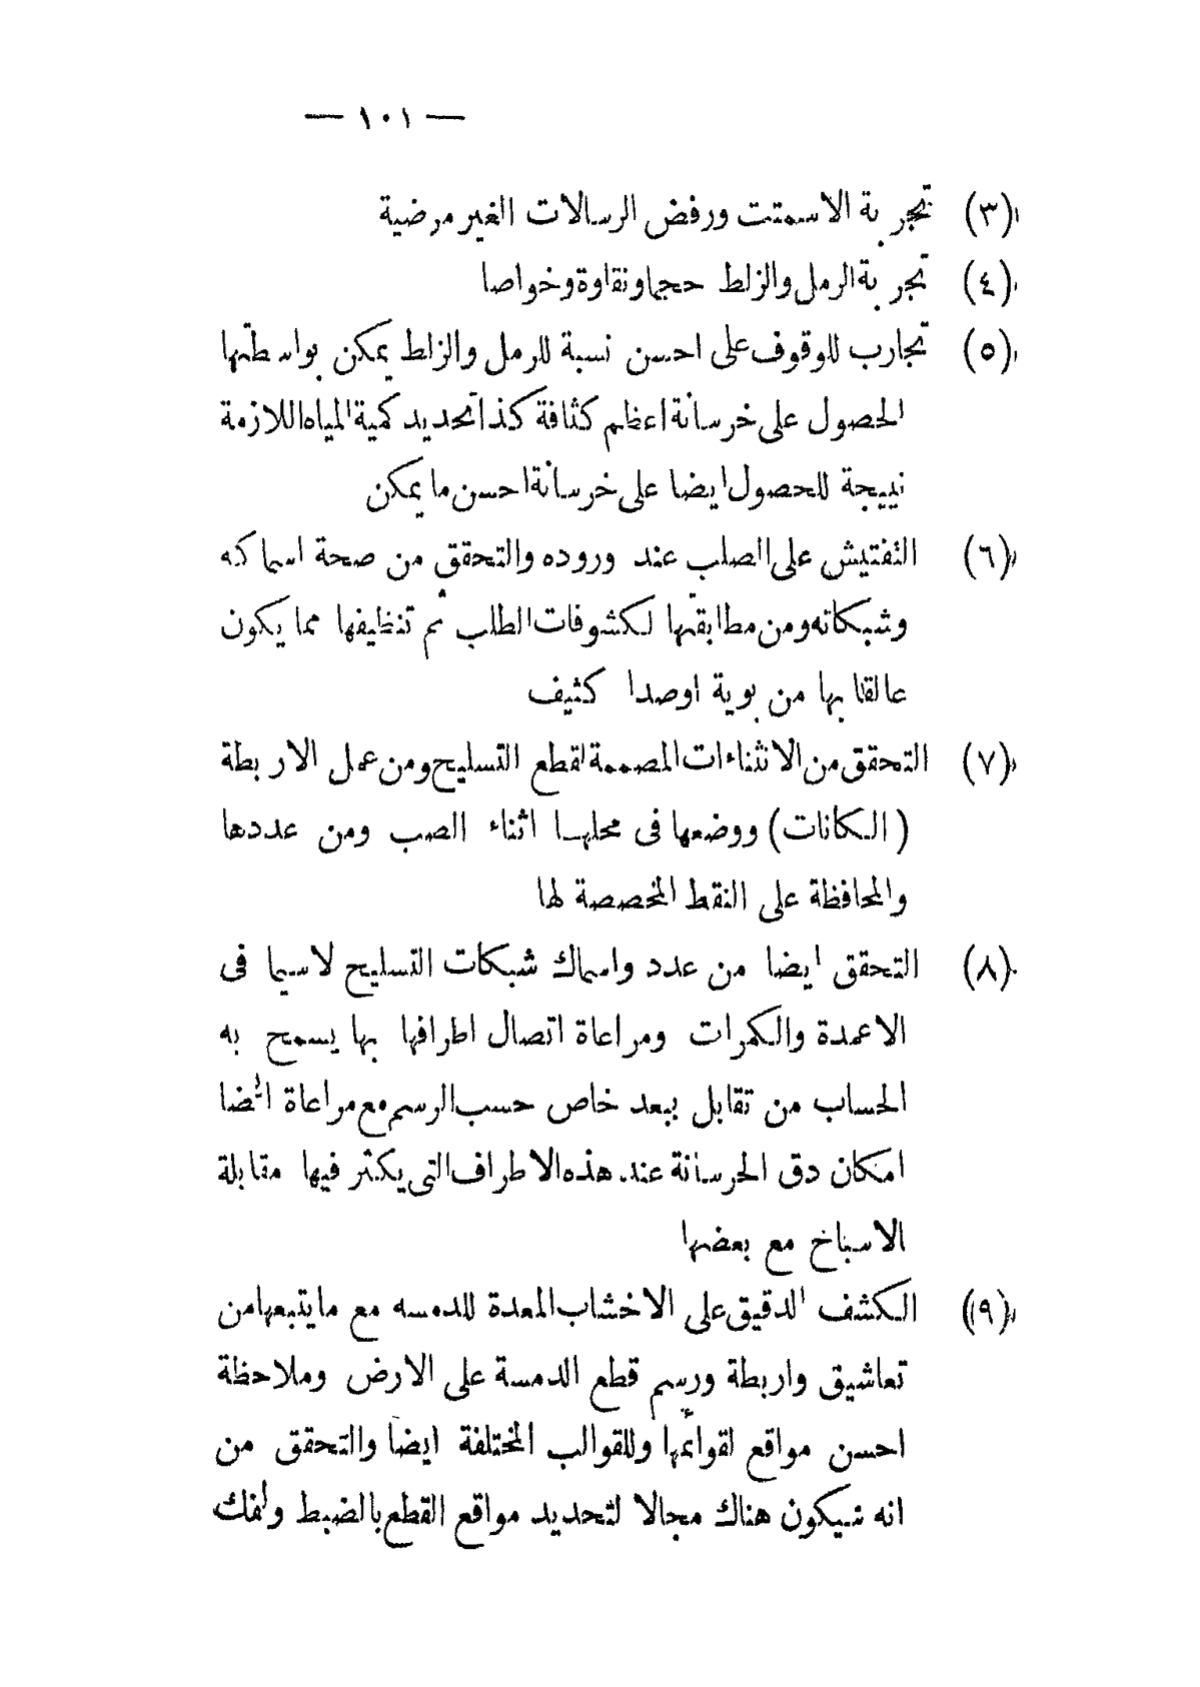 — ١٠١ —
(٣) تجربة الاسمنت ورفض الرسالات الغير مرضية
(٤) تجربة الرمل والزلط حجما ونقاوة وخواصا
(٥) تجارب للوقوف على احسن نسبة للرمل والزلط يمكن بواسطتها
الحصول على خرسانة اعظم كثافة كذا تحديد كمية المياه اللازمة
نتيجة للحصول ايضا على خرسانة احسن ما يمكن
(٦) التفتيش على الصلب عند وروده والتحقق من صحة اسماكه
وشبكاته ومن مطابقتها لكشوفات الطلب ثم تنظيفها مما يكون
عالقا بها من بوية او صدا كثيف
(٧) التحقق من الانثناءات المصممة لقطع التسليح ومن عمل الاربطة
( الكانات ) ووضعها فى محلها اثناء الصب ومن عددها
والمحافظة على النقط المخصصة لها
(٨) التحقق ايضا من عدد واسماك شبكات التسليح لاسيما فى
الاعمدة والكمرات ومراعاة اتصال اطرافها بها يسمح به
الحساب من تقابل ببعد خاص حسب الرسم مع مراعاة ايضا
امكان دق الخرسانة عند هذه الاطراف التى يكثر فيها مقابلة
الاسياخ مع بعضها
(٩) الكشف الدقيق على الاخشاب المعدة للدمسه مع ما يتبعها من
تعاشيق واربطة ورسم قطع الدمسة على الارض وملاحظة
احسن مواقع لقوائمها وللقوالب المختلفة ايضا والتحقق من
انه سيكون هناك مجالا لتحديد مواقع القطع بالضبط ولفك